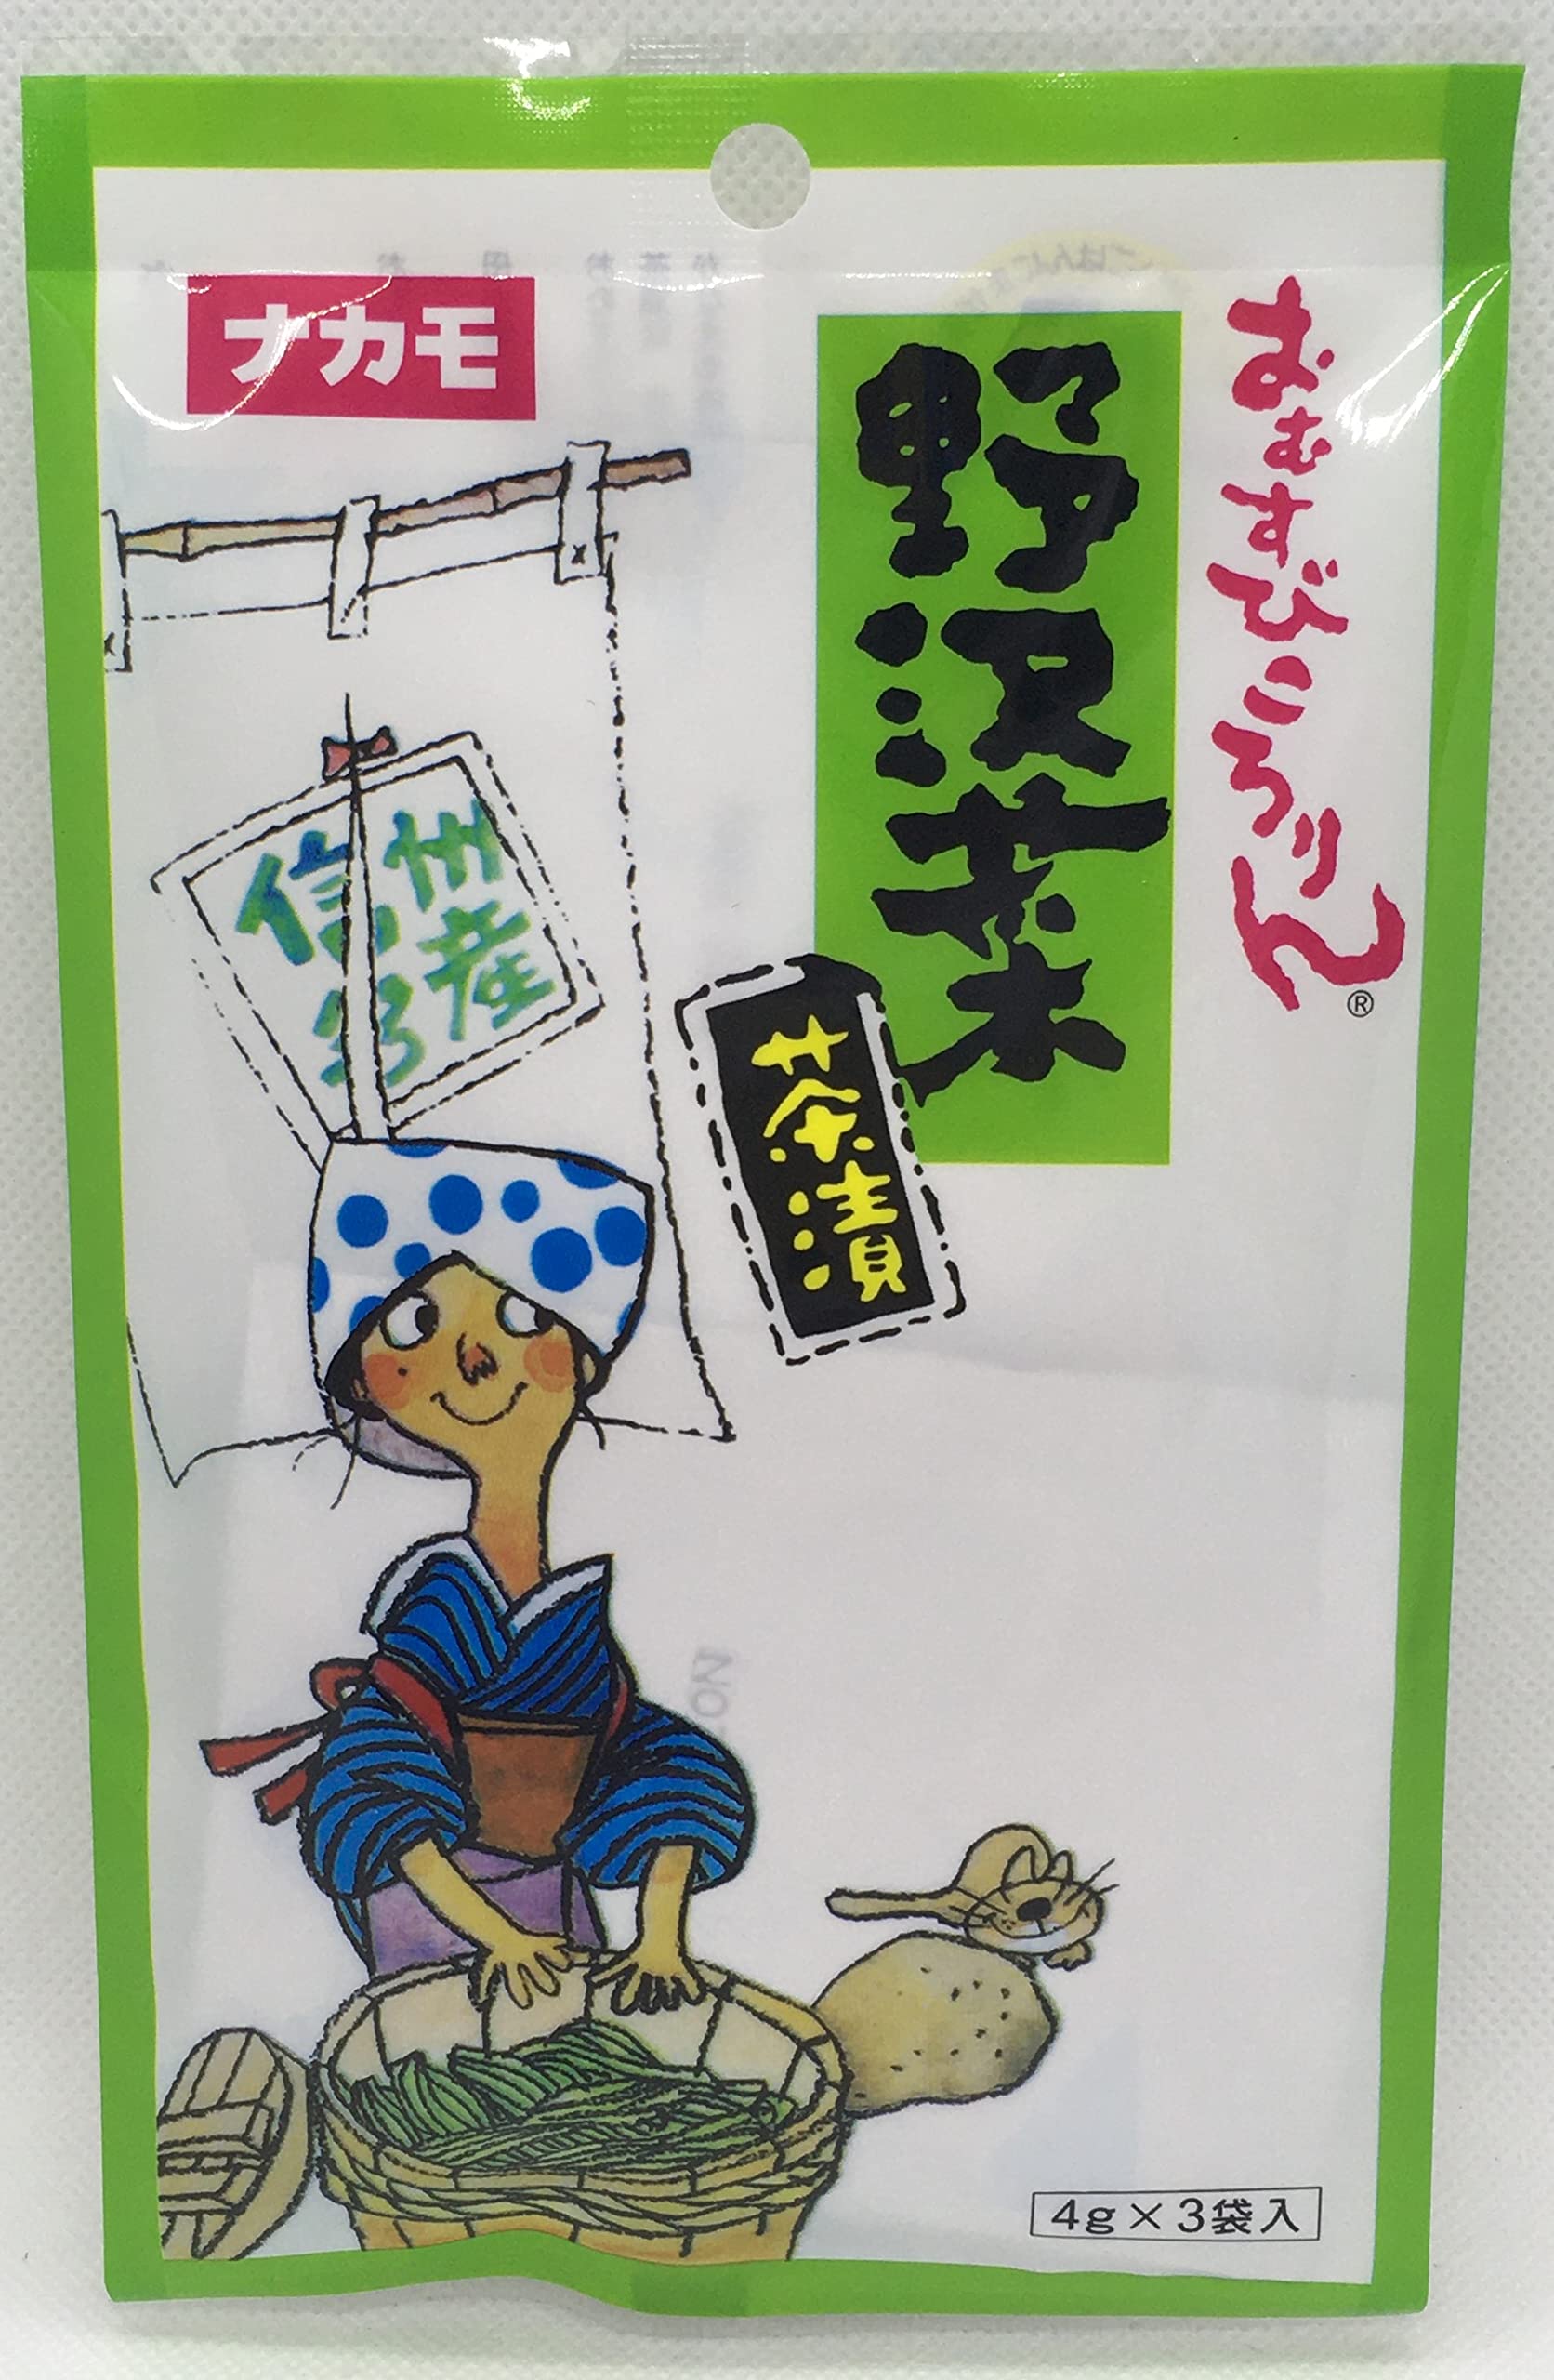 ナカモ
おむすびころりん
®
野沢菜
茶漬
信州
産
4g×3袋入